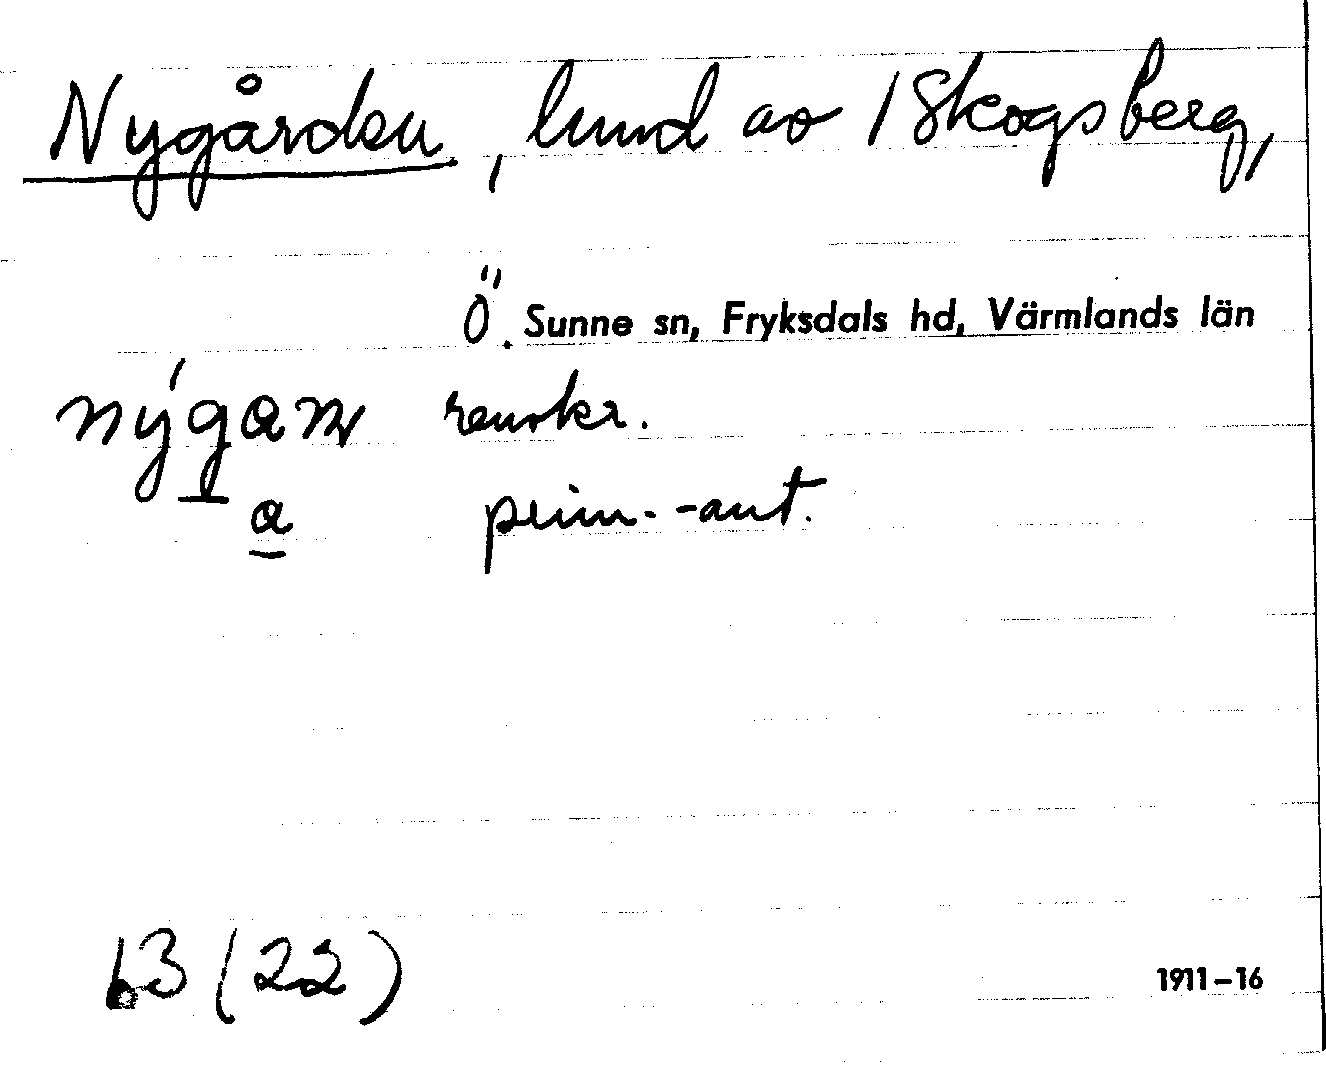 Nygården, lund av 1 Skogsberg,
Ö. Sunne sn, Fryksdals hd, Värmlands län
nýgaṇ renskr.
a prim.-ant.
63 (22)
1911–16